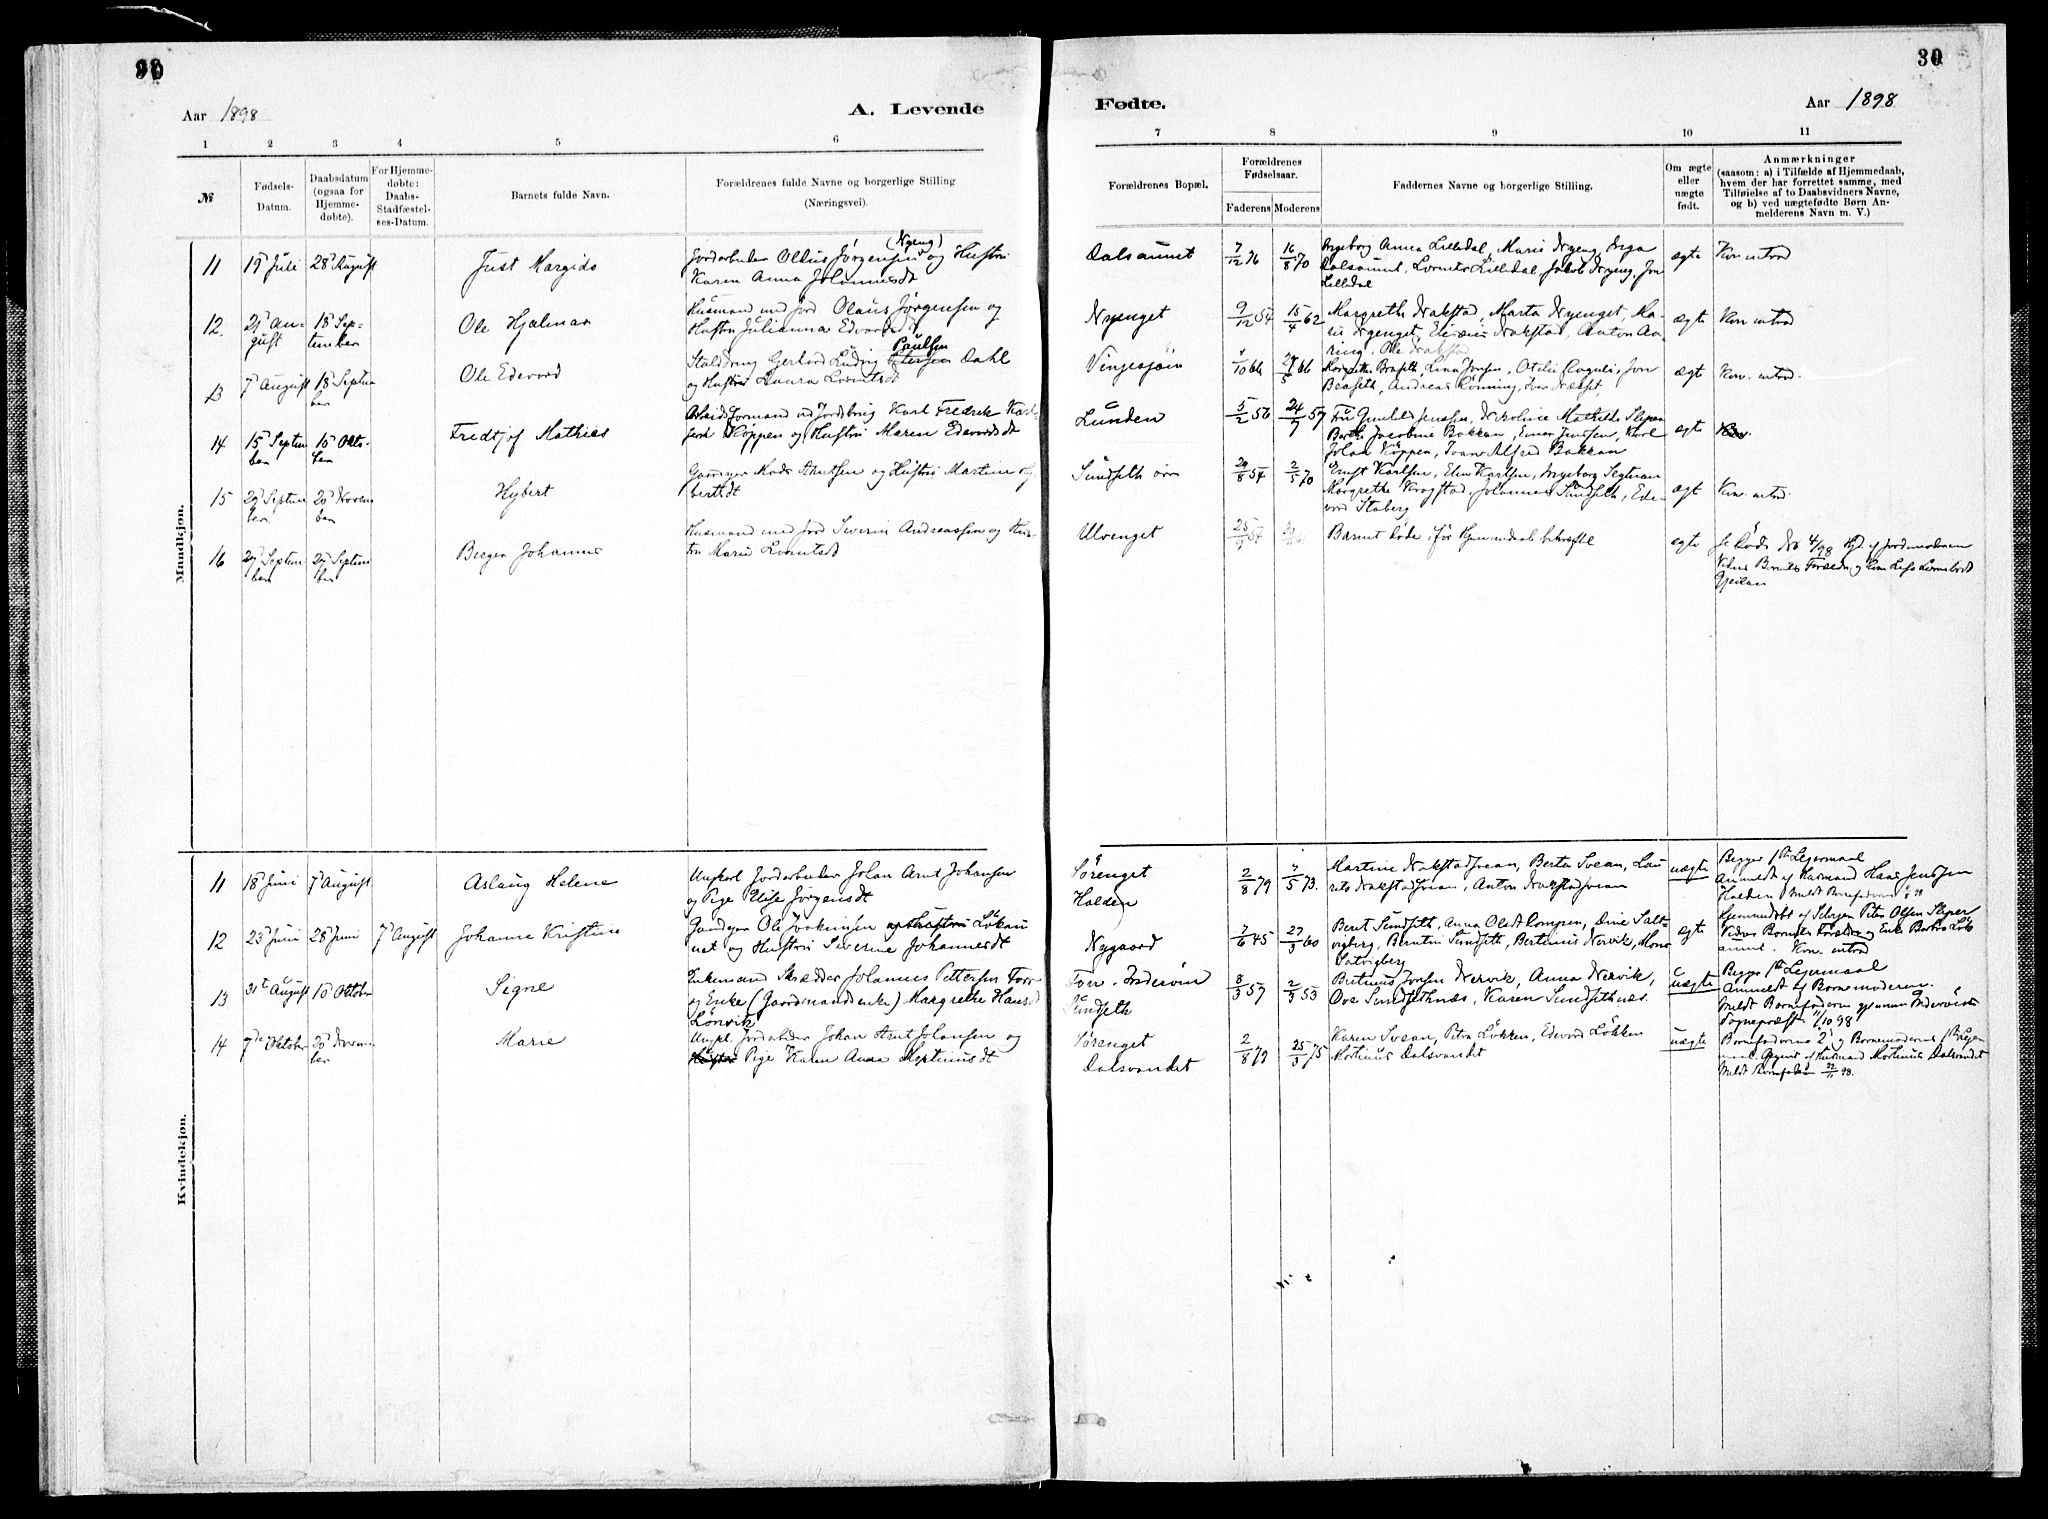 30
30
Aar 1898
A. Levende
Fødte.
Aar 1898
1 2 3 4 5 6
7 8 9 10 11
№
Fødsels-
Datum.
Daabsdatum
(ogsaa for
Hjemme-
døbte).
For Hjemme-
døbte:
Daabs-
Stadfæstel-
ses-Datum.
Barnets fulde Navn.
Forældrenes fulde Navne og borgerlige Stilling
(Næringsvei).
Forældrenes Bopæl.
Forældrenes
Fødselsaar.
Faderens Moderens
Faddernes Navne og borgerlige Stilling.
Om ægte
eller
uægte
født.
Anmærkninger
(saasom: a) i Tilfælde af Hjemmedaab,
hvem der har forrettet samme, med
Tilføielse af to Daabsvidners Navne,
og b) ved uægtefødte Børn An-
melderens Navn m. V.)
Mandkjøn.
11 19 Juli 28 August Just Margido
(Nyeng)
Jordarbeider Oluus Jörgensen og Hustru
Karen Anna Johannesdt
Dalsaunet 7/12 76 16/8 70
Ingeborg Anna Lilledal, Marie Nyeng, Inga
Dalsaunet, Lorents Lilledal, Jakob Nyeng, Jon
Lilledal
ægte Kon introd
12. 21 Au-
gust 18 Sep-
tember Ole Hjalmar
Husmand med Jord Olaus Jørgensen og
Hustru Julianna Edvardsdt
Nyenget 9/12 54 15/4 62
Margrethe Nakstad, Marta Nyenget, Ma-
rie Nyenget, Nakstad, Anton Aa-
ring, Ole Nakstad
ægte Kon introd
13 7 August 18 Septem
ber Ole Edevard
Paulsen
Gerhard Ludvig Petersen Dahl
og Hustru Laura Lorntsdt
Vingesjøen 4/10 66 24/5 66
Braseth, Lina Jonsen, Otelie Rognli, Jon
Braseth, Andreas Rönning, Iver Næsset,
ægte Kon. introd.
14 15 Septem
ber 16 Okto-
ber Fredtjof Mathias
Arbeidsformand ved Jordebrug Karl Fredrik Karl-
sen Köppen og Hustru Maren Edevardsdt
Lunden 5/2 56 24/7 57
Fru Gunhild Jenssen, Nikoline Mathilde Slipen
Berthe Jacobine Bakken, Einar Jenssen, Karl
Johan Köppen, Ivar Alfred Bakkan
ægte Kon.
15 29 Septem
ber 20 Novem
ber Hybert
Gaardmr Mads Arntsen og Hustru Martine Hy
bertsdt
Sundseth øvre 29/8 54 2/5 70
Ernst Karlsen, Elen Karlsen, Ingeborg Segtnan
Margrethe Kragstad, Johannes Sundseth, Ede-
vard Staberg
ægte Kon. introd.
16 27 Septem
ber 27 Septem
ber Bergen Johannes
Husmand med Jord Severin Andreassen og Hus-
tru Marie Lorentsdt
Ulvenget 25/9 54
Barnet døde før Hjemmedaab bekræftet
ægte se Døde No 4/98 Hjd. af Jordemoderen
Vidner Barnets Forældre og
Gjeilan
Kvindekjøn.
11 18 Juni 7 August Aslaug Helene
Ungkarl Jordarbeider Johan Arnt Johansen
og Pige Elise Jörgensdt
Sörenget
Holden
2/8 79 4/5 73.
Martine Nakstadsvean, Berta Svean, Lau
rits Nakstadsvean, Anton Nakstadsvean
uægte Begges 1ste Leiermaal
Anmeldt af Husmand Hans Jenssen
Holden Meldt Barnefaderen
12 23 Juni 28 Juni 7 August Johanna Kristine
Gaardmr Ole Joakimsen og Hustru Lökau
net og Hustru Severine Johannesdt
Nygaard 7/6 45 27/3 60
Berit Sundseth, Anna Olsdt Rompen, Dine Salt-
vigberg, Berntine Sundseth, Bertinus Nervik,
Saltvigberg
ægte Hjemmedøbt af Peter Olsen Sliper
Vidner Barnets Forældre og Enke Berbro Lök
aunet. Kon. introd
13 31te August 16 Oktober Signe
Enkemand Skrædder Johannes Pettersen Forr
og Enke (Gaardmandsenke) Margrethe Hansdt
Lönvik
Forr. Inderöen
Sundseth
8/3 57 2/3 53
Bertinus Jonsen Nervik, Anna Nervik,
Ove Sundsethnæs, Karen Sundsethnæs.
uægte Begges 1ste Leiermaal
Anmeldt af Barnemoderen.
Meldt Barnefaderen gjennem Inderöens
Sognepræst 11/10 98
14 7de Oktober 20 Novem
ber Marie
Ungkl. Jordarbeider Johan Arnt Johansen og
Hustru Pige Karen Anna Septimusdt
Sörenget
Dalsvandet
2/8 79 25/3 75
Karen Svean, Petra Lökken, Edevard Lökken
Mortinus Dalsvandet
uægte Barnefaderens 2' og Barnemoderens 1ste Leier
maal. Opgivet af Husmand Mortinus Dalsvandet
Meldt Barnefaderen 22/11 98.